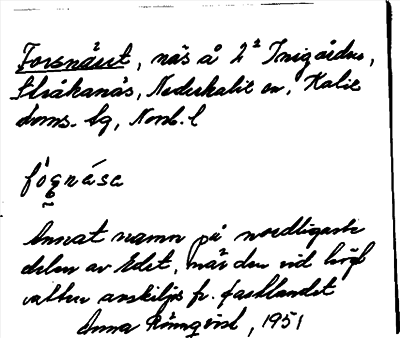 Forsnäset, näs å 2² Inigården,
Stråkanäs, Nederkalix sn, Kalix
doms. sg, Norrb. l
fògnása
Annat namn på nordligaste
delen av Edet, när den vid högt
vatten avskiljs fr. fastlandet
Anna Rönnqvist, 1951